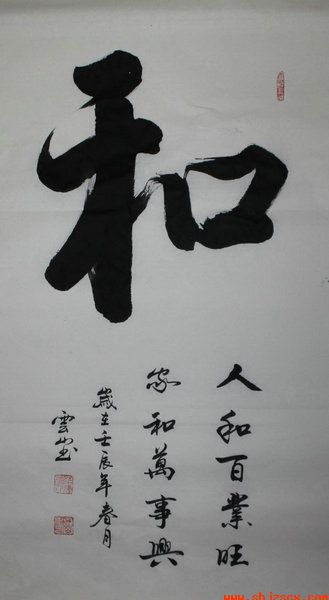 和
人和百業旺
家和萬事興
歲在壬辰年春月
www.shjzscx.com